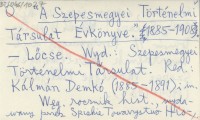 A Szepesmegyei Történelmi
Társulat Évkönyve. (1885-1905).
— Lőcse. Wyd.: Szepesmegyei
Történelmi Társulat. Red.:
Kálmán Demkó (1885-1891) in.
Węg. rocznik hist., wyda-
wany przez Spiskie Towarzystwo Hist.